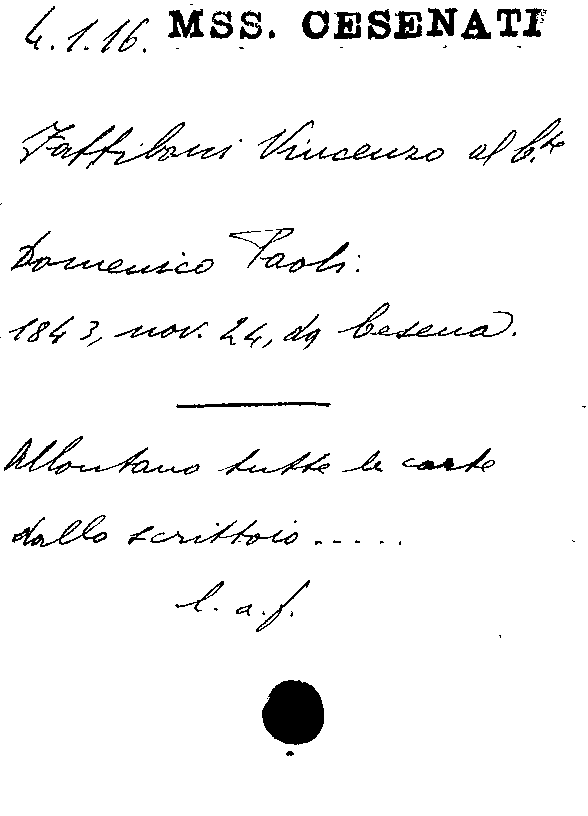 4.1.16. MSS. CESENATI
Zaffiloni Vincenzo al C.te
Domenico Paoli.
1843, nov. 24, da Cesena.
Allontano tutte le carte
dallo scrittoio.....
l. a. f.